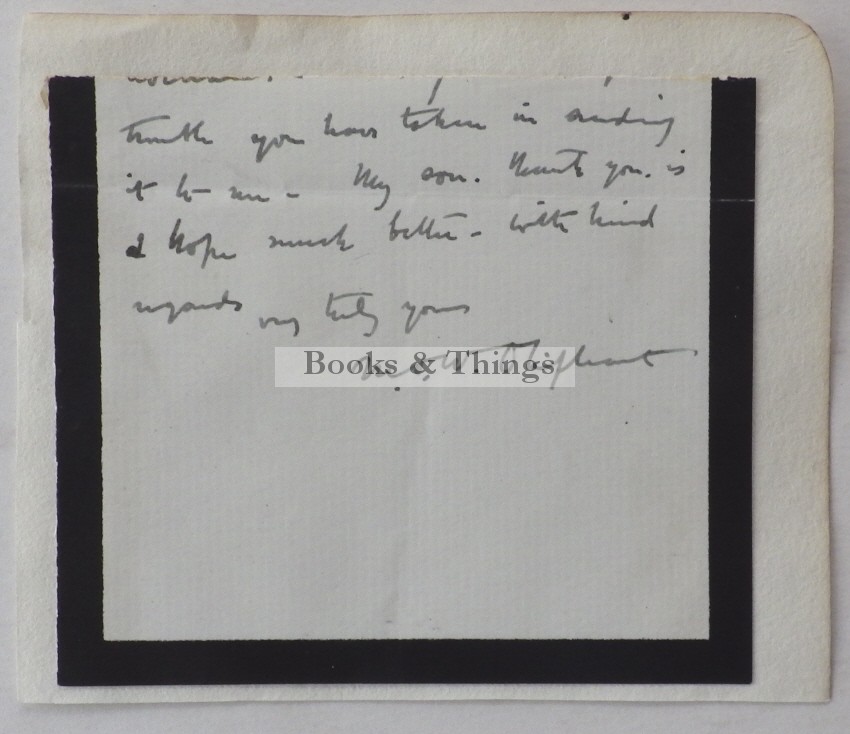 trouble you have taken in sending
it to me - My son. thank you. is
I hope much better - with kind
regards very truly yours
Books & Things
W. Oliphant